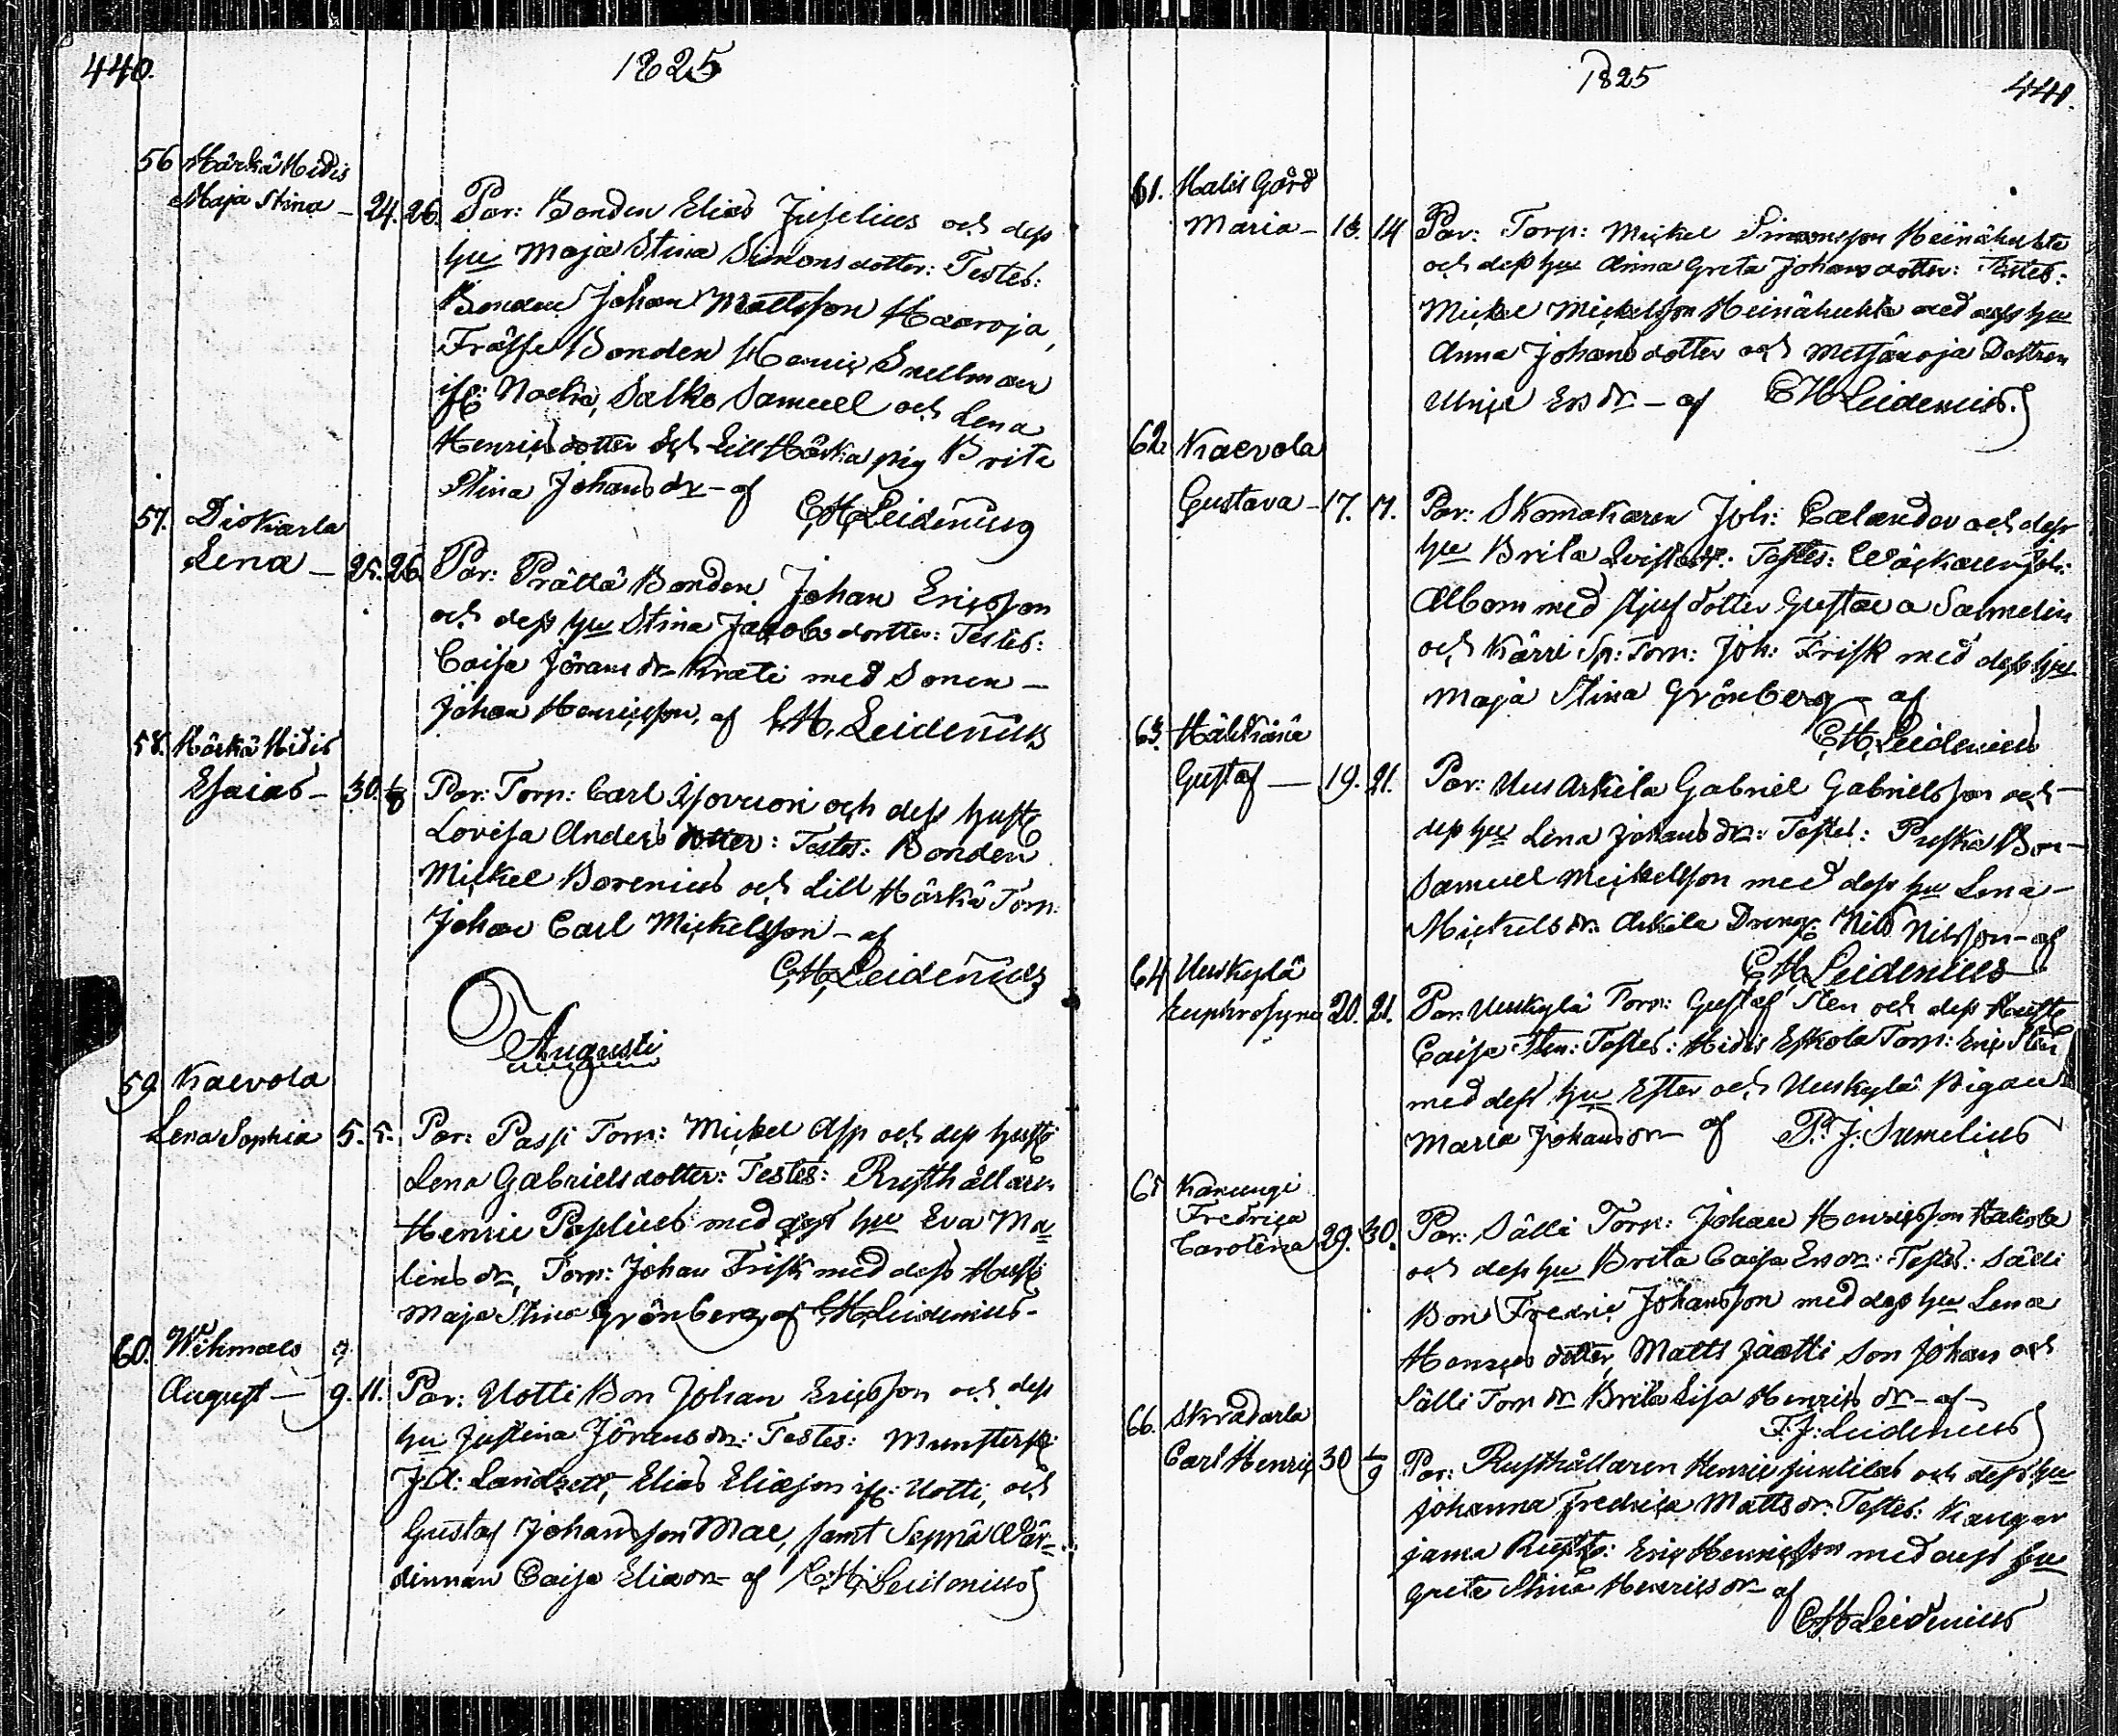 440.
1825
56 Härkä Hidis
Maja Stina - 24. 26. Par: Bonden Elias Juselius och dess
hu Maja Stina Simonsdotter: Testes:
Bonden Johan Mattsson Haaroja,
Frälse Bonden Henric Snellman
Salko Samuel och Lena
Henricsdotter och Lill Härkä pig Brita
Stina Johans dr - af
C.H. Leidenius
57. Diskarla
Lena - 25. 26. Par: Prättä Bonden Johan Ericsson
och dess hu Stina Jacobsdotter: Testes:
Caisa Jörans dr Krati med Sonen -
Johan Henricsson, af C.H. Leidenius
58. Härkä Hidis
Esaias - 30. 1/8 Par: Torp: Carl och dess hust
Lovisa Anders dotter: Testes: Bonden
Mickel Borenius och Lill Härkä Torp:
Johan Carl Mickelsson - af
C.H. Leidenius
Augusti
59 Kaevola
Lena Sophia 5. 5. Par: Passi Torp: Mickel Asp och dess hust
Lena Gabrielsdotter: Testes: Rusthållaren
Henric Paslius med dess hu Eva Ma=
lins dr, Torp: Johan Frisk med dess Hust
Maja Stina Grönberg, af C.H. Leidenius -
60. Wihmais
August - 9. 11. Par: Uotti Bon Johan Ericsson och dess
hu Justina Jörans dr: Testes: Munstersk:
J.A: Landzett, Elias Eliasson Uotti, och
Gustaf Johansson Mae, samt Seppä Wär=
dinnan Caisa Elias dr af C.H. Leidenius
1825
441.
61. Halis Gård
Maria - 13. 14 Par: Torp: Mickel Simonsson Heinähuhta
och dess hu Anna Greta Johansdotter: Testes:
Mickel Mickelsson Heinähuhta med dess hu
Anna Johansdotter och Metsäroja Dottren
Ulrica Ers dr - af C.H. Leidenius.
62. Kaevola
Gustava - 17. 17. Par: Skomakaren Joh: Calander och dess
hu Brita Qvist: Testes: Joh:
Albom med stjufdotter Gustava Samelin
och Kärri Sp: Torp: Joh: Frisk med dess hu
Maja Stina Grönberg - af
C.H. Leidenius
63. Hälikänä
Gustaf - 19. 21. Par: Uus Arkila Gabriel Gabrielsson och -
dess hu Lena Johans dr: Testes: Puska Bon -
Samuel Mickelsson med dess hu Lena -
Mickels dr. Arkila Dreng: Nils Nilsson - af
C.H. Leidenius
64 Uuskylä
Euphrosyne 20. 21. Par: Uuskylä Torp: Gustaf Sten och dess Hust
Caisa Sten: Testes: Hidis Eskola Torp: Eric Sten
med dess hu Ester och Uuskylä Pigan
Maria Johans dr - af P.J: Sumelius
65 Kanungi
Fredrica
Carolina 29. 30. Par: Sälli Torp: Johan Henricsson Hakola
och dess hu Brita Caisa Ers dr: Testes: Sälli
Bon Fredric Johansson med dess hu Lena
Henrics dotter, Matts Jaatti son Johan och
Sälli Torp dr Brita Lisa Henrics dr - af -
F.J: Leidenius
66. Skradarla
Carl Henric 30 1/9 Par: Rusthållaren Henric Juntilas och dess hu
Johanna Fredrica Matts dr. Testes: Kangar
jama Rusth: Eric Henricsson med dess hu
Greta Stina Henrics dr - af
C.H. Leidenius